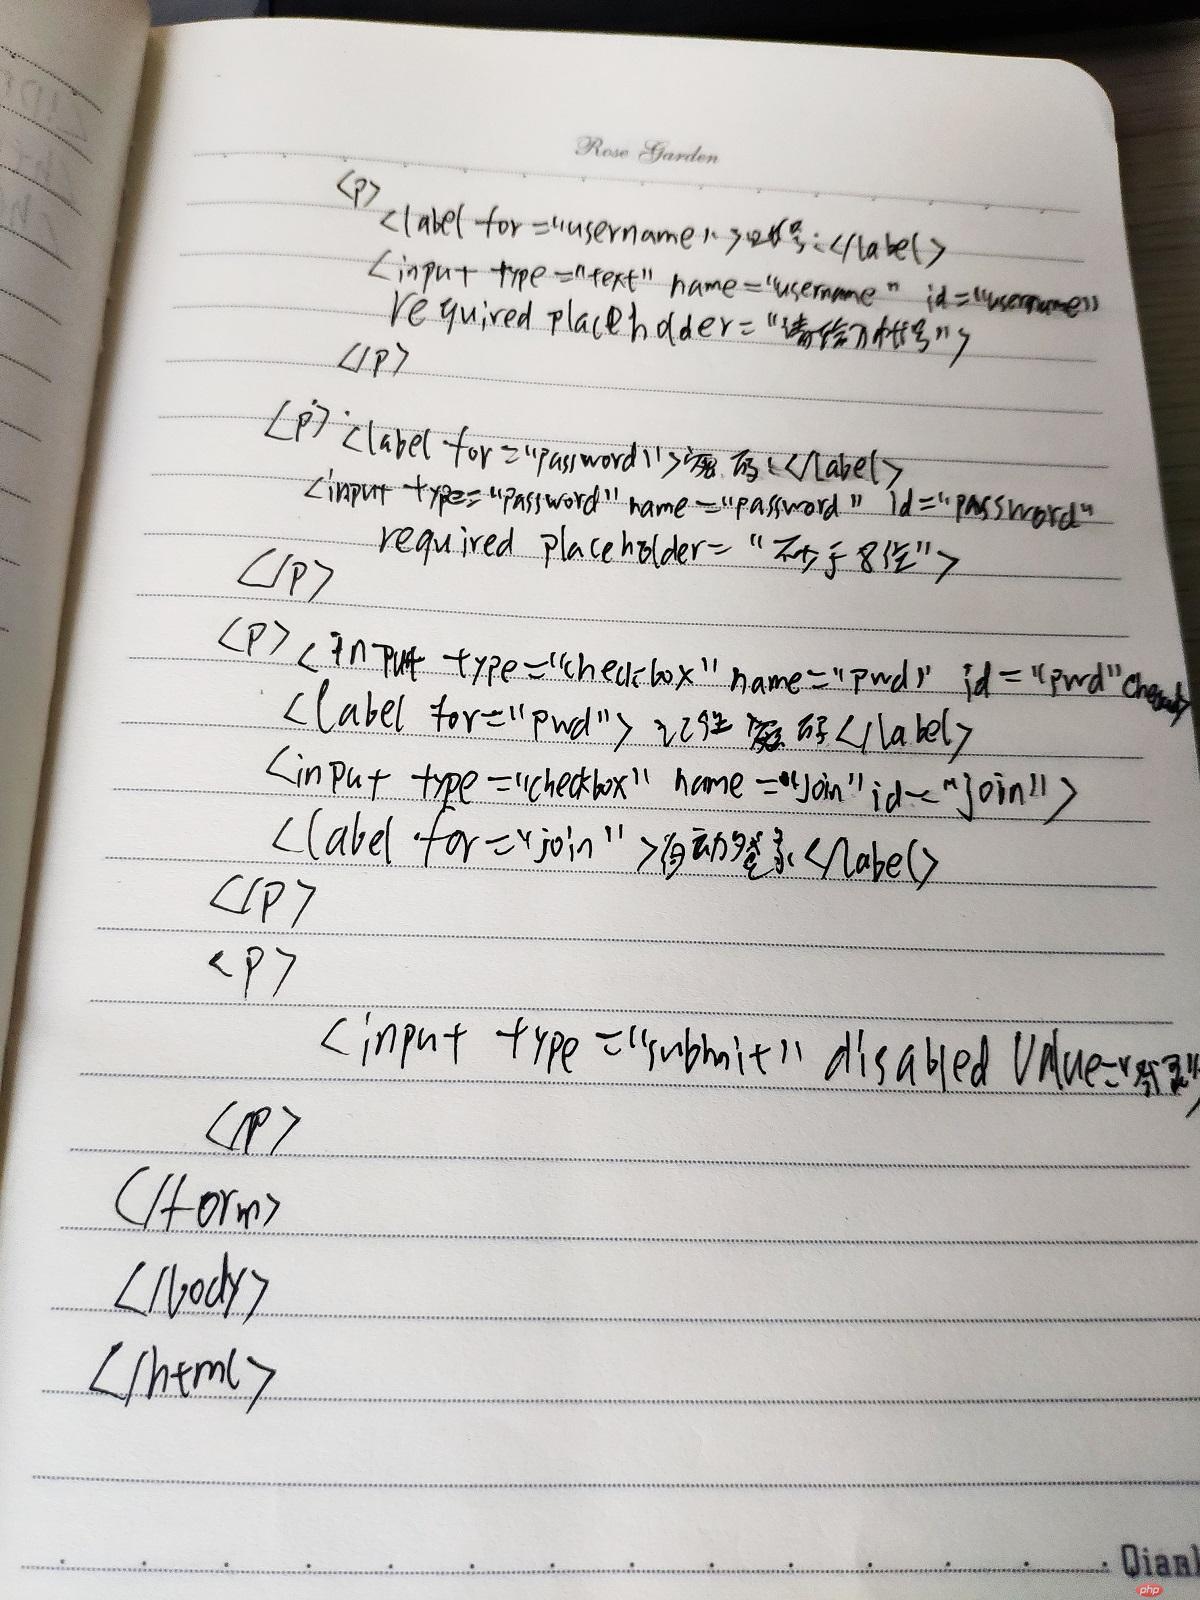 Rose Garden
<p>
<label for="username">账号:</label>
<input type="text" name="username" id="username"
required placeholder="请输入账号">
</p>
<p> <label for="password">密码:</label>
<input type="password" name="password" id="password"
required placeholder="不少于8位">
</p>
<p> <input type="checkbox" name="pwd" id="pwd"
<label for="pwd"> 记住密码</label>
<input type="checkbox" name="join" id="join">
<label for="join">自动登录</label>
</p>
<p>
<input type="submit" disabled value="
</p>
</form>
</body>
</html>
Qianl
php